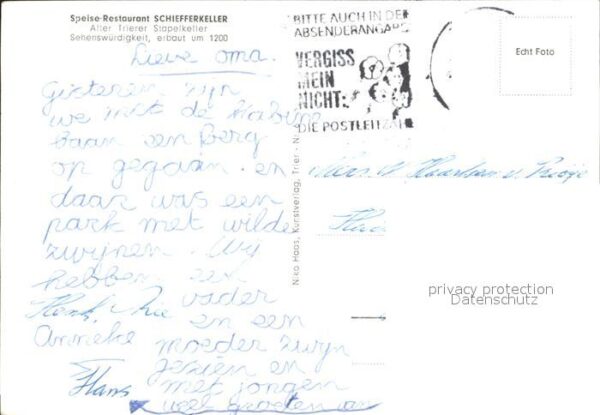 Speise-Restaurant SCHIEFFERKELLER
Alter Trierer Stapelkeller
Sehenswürdigkeit, erbaut um 1200
Lieve oma.
Gisteren zijn
we met de Kabine
baan een Berg
op gegaan en
daar was een
park met wilde
zwijnen. Wij
hebben een
vader
en een
moeder zwijn
gezien en
met jongen
veel groeten van
Henk, Mie
Anneke
Hans
Niko Haas, Kunstverlag, Trier
BITTE AUCH IN DER
ABSENDERANGABE
VERGISS
MEIN
NICHT:
DIE POSTLEITZAHL
Echt Foto
privacy protection
Datenschutz